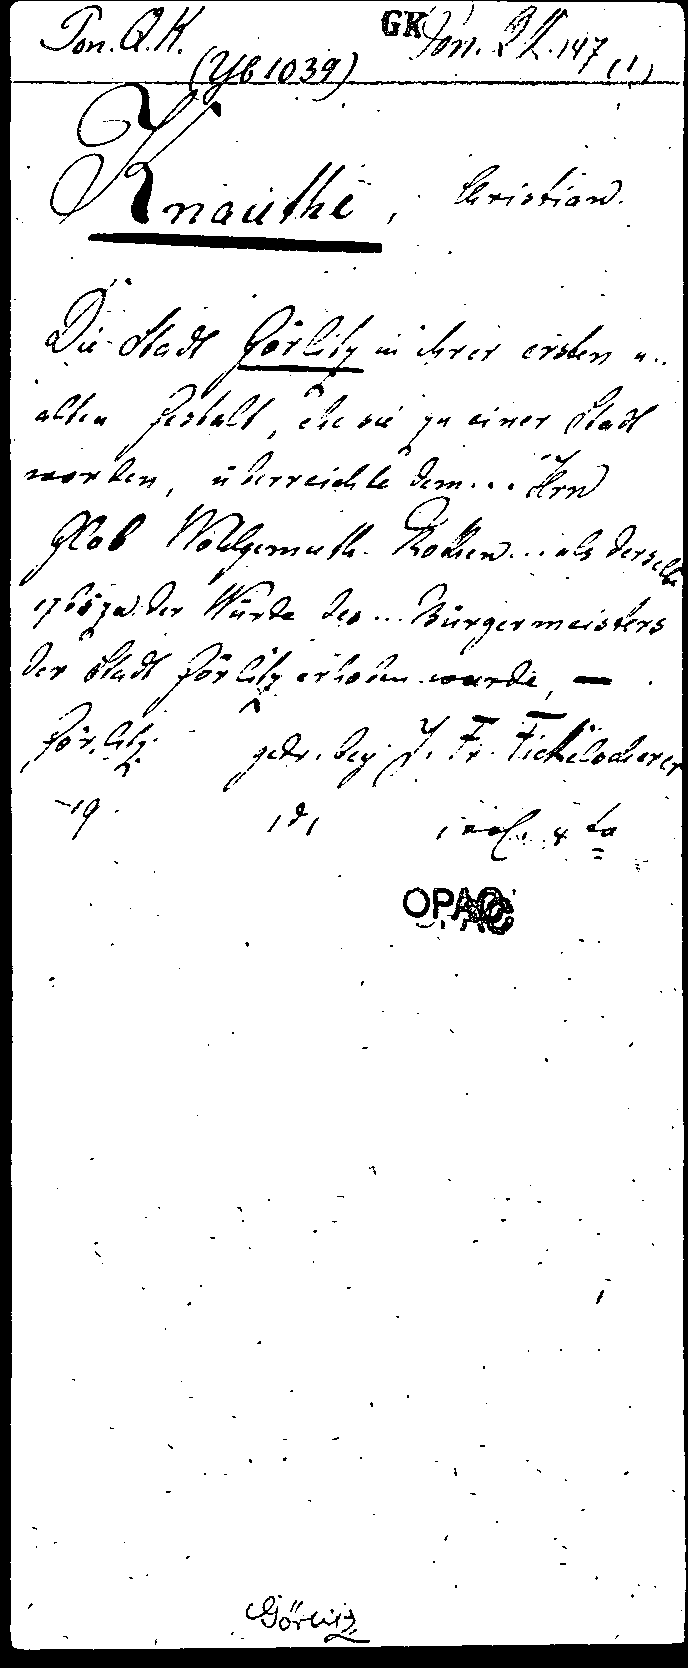 Pon. Q. K. GK Pon. QK. 147 (1)
(Yb 1039)
Knauthe, Christian.
Die Stadt Görlitz in ihrer ersten u.
alten Gestalt, ehe sie zu einer Stadt
worden, überreichte dem... Hrn
Glob Wohlgemuth ... als derselbe
1765 zu der Würde des... Bürgermeisters
der Stadt Görlitz erhoben wurde, —
Görlitz. gedr. bey J. Fr. Fickelscherer
OPAC
Görlitz